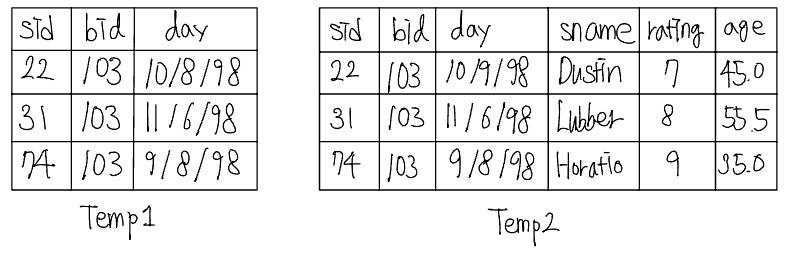 sid bid day
22 103 10/8/98
31 103 11/6/98
74 103 9/8/98
Temp1
sid bid day sname rating age
22 103 10/9/98 Dustin 7 45.0
31 103 11/6/98 Lubber 8 55.5
74 103 9/8/98 Horatio 9 35.0
Temp2